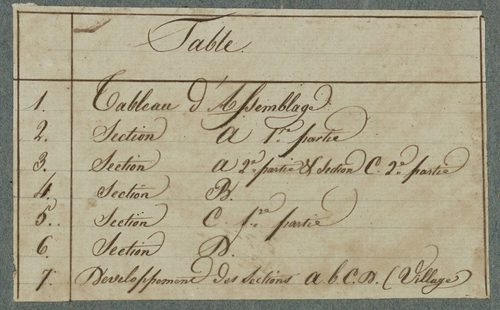 Table
1. Tableau d'Assemblage
2. Section A 1re partie
3. Section A 2e partie & Section C. 2e partie
4. Section B.
5. Section C. 1re partie
6. Section D.
7. Developpement des Sections A b C. D. (Village)